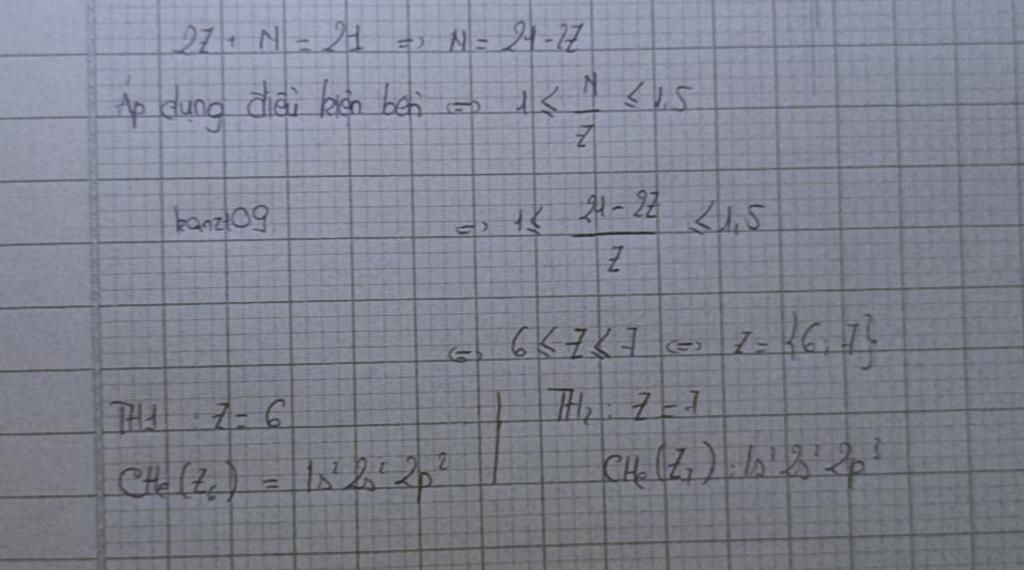 2Z + N = 21 => N = 21-2Z
Áp dụng điều kiện bền => 1 ≤ N/Z ≤ 1,5
kanzt09 => 1 ≤ (21-2Z)/Z ≤ 1,5
<=> 6 ≤ Z ≤ 7 <=> Z = {6, 7}
TH1 : Z = 6
CHe (Z₆) = 1s² 2s² 2p²
TH₂ : Z = 7
CHe (Z₇) : 1s² 2s² 2p³